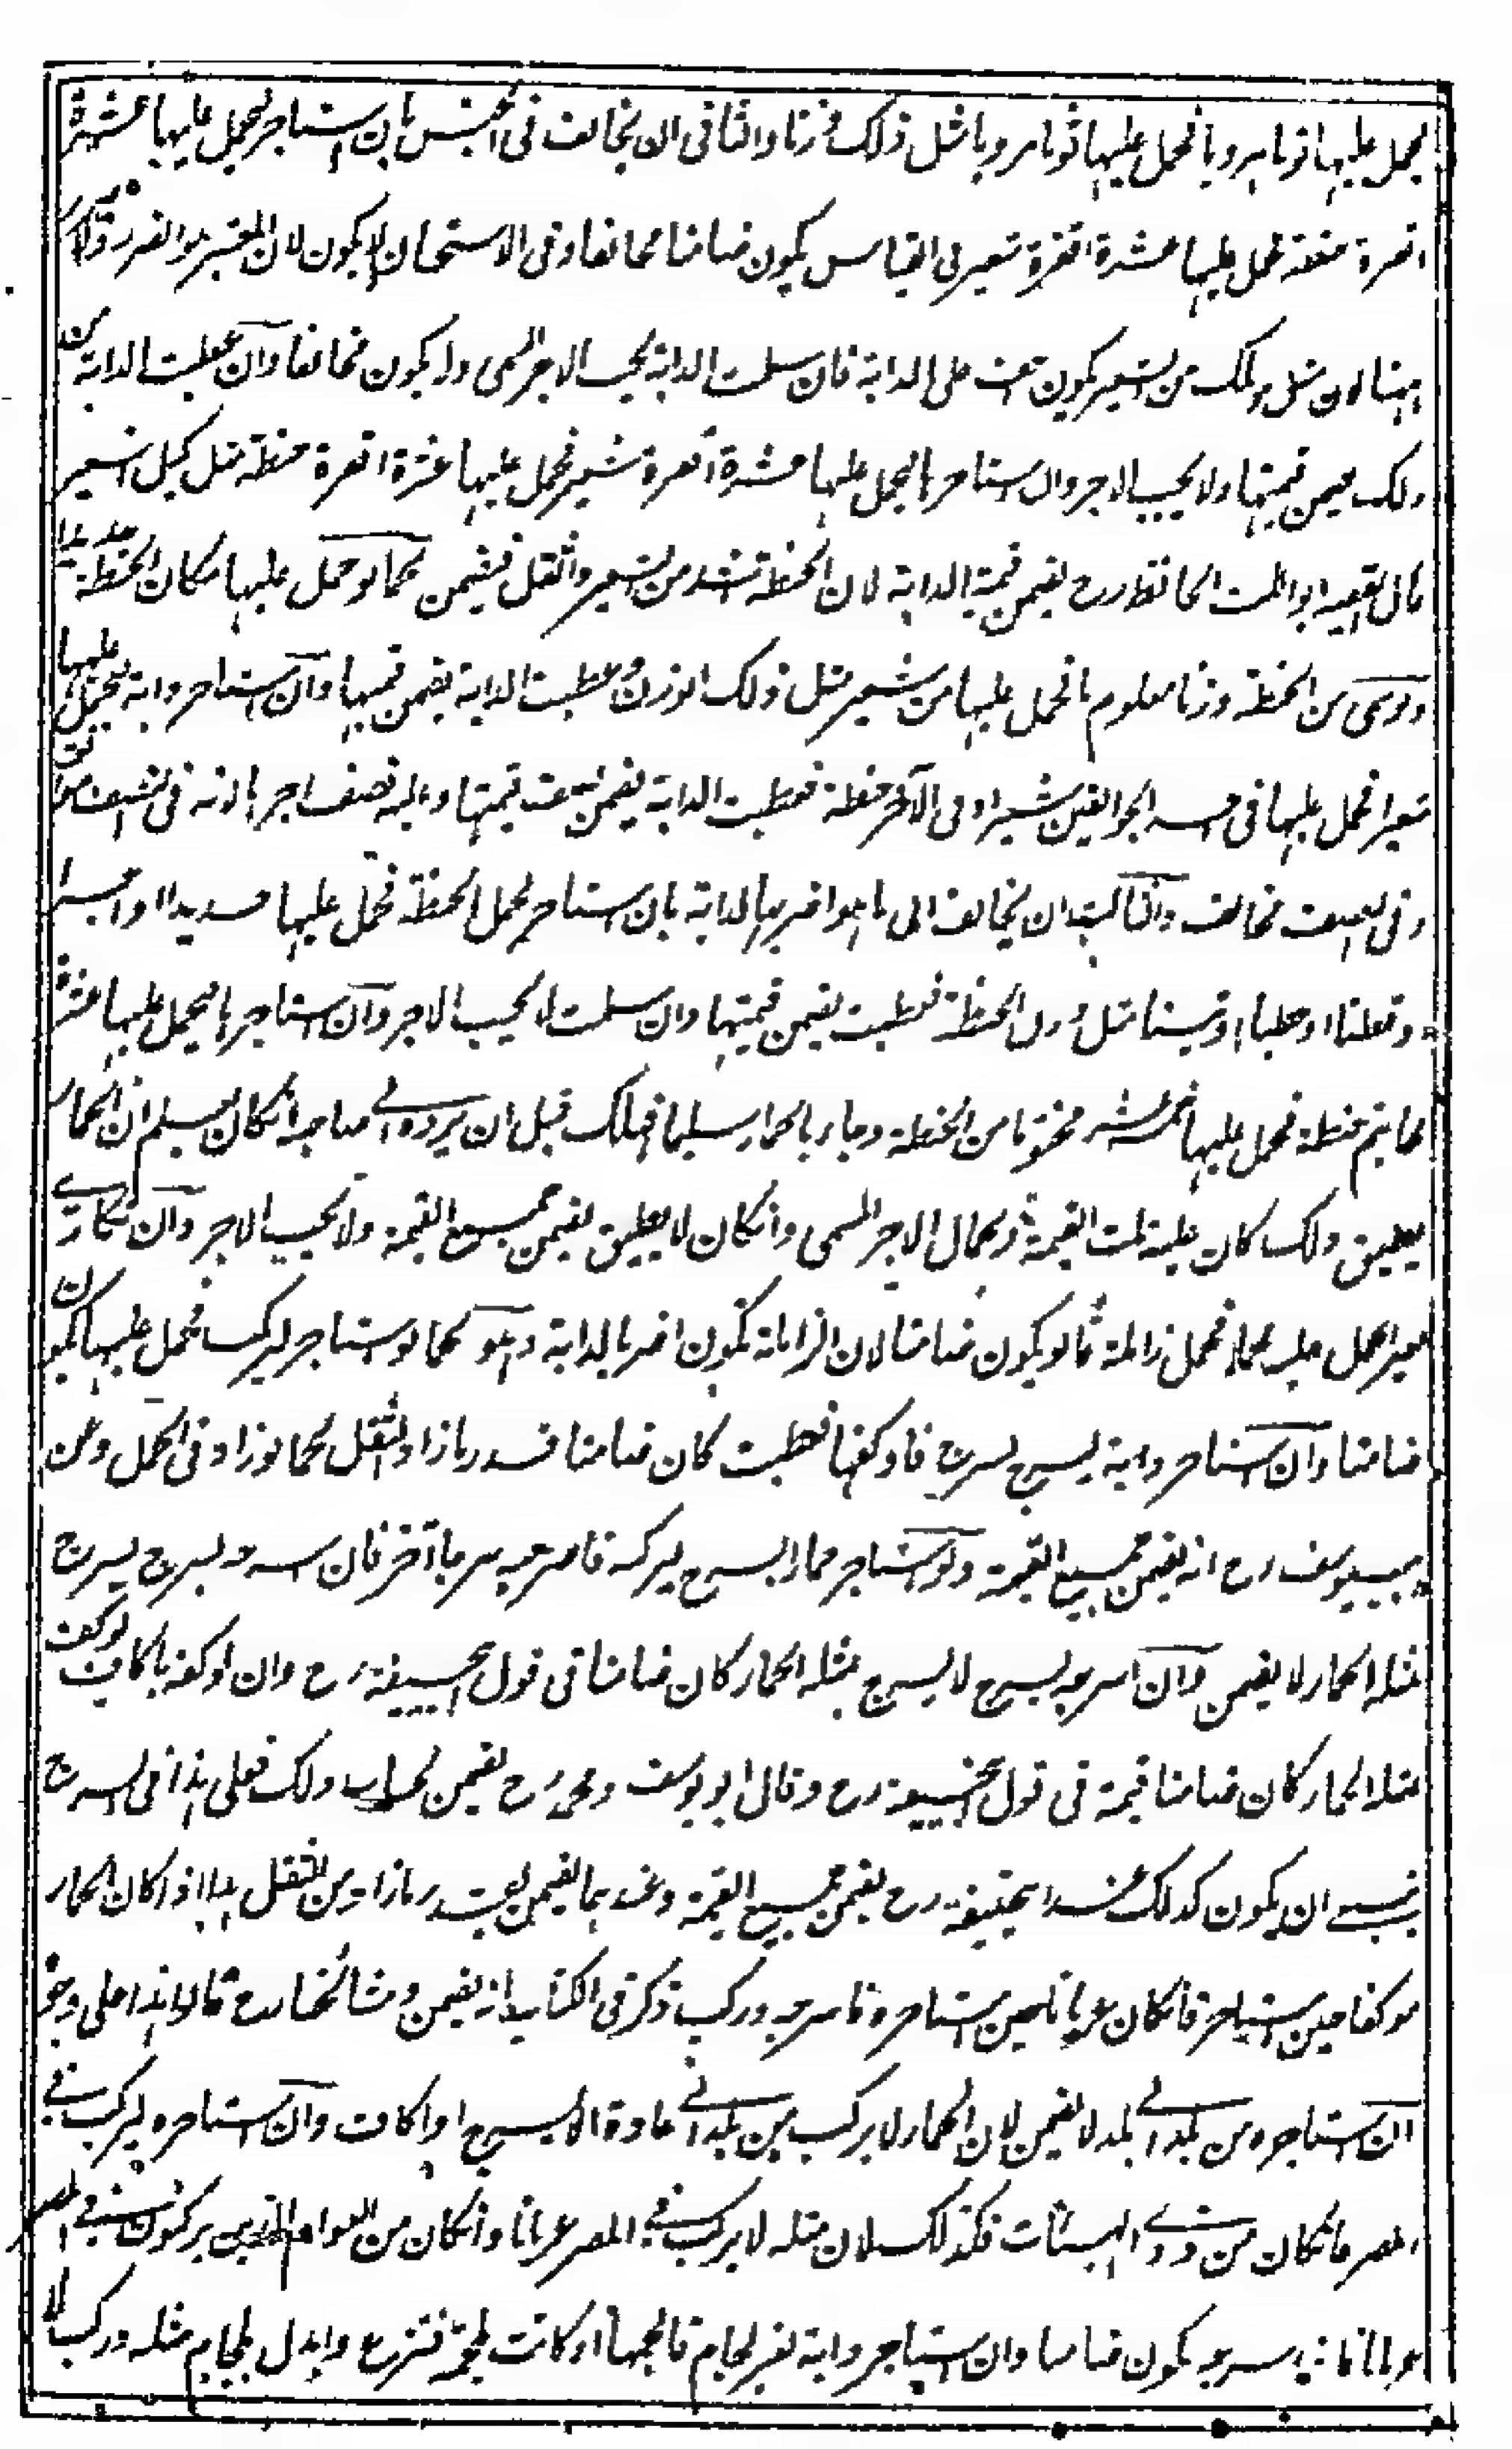 يحمل عليها ثوبا هرويا فحمل عليها ثوبا مرويا مثل ذلك وزنا والثاني ان يخالف في الجنس بان استاجر ليحمل عليها عشرة
اقفزة حنطة فحمل عليها عشرة اقفزة شعير في القياس يكون ضامنا مخالفا وفي الاستحسان لا يكون لان المعتبر هو الضرر ولا ضرر
ههنا لان مثل ذلك من الشعير يكون اخف على الدابة فان سلمت الدابة يجب الاجر المسمى ولا يكون مخالفا وان عطبت الدابة من
ذلك يضمن قيمتها ولا يجب الاجر وان استاجرها ليحمل عليها عشرة اقفزة شعير فحمل عليها عشرة اقفزة حنطة مثل كيل الشعير
قال الفقيه ابو الليث الحافظ رح يضمن قيمة الدابة لان الحنطة اشد من الشعير واثقل فيضمن كما لو حمل عليها مكان الحنطة حديدا
ولو سمى من الحنطة وزنا معلوم فحمل عليها من شعير مثل ذلك الوزن وعطبت الدابة يضمن قيمتها وان استاجر دابة ليحمل عليها
شعيرا فحمل عليها في احد الجوالقين شعيرا وفي الآخر حنطة فعطبت الدابة يضمن نصف قيمتها وعليه نصف اجرها لانه في النصف موافق
وفي النصف مخالف والثالث ان يخالف الى ما هو اضر بالدابة بان استاجر ليحمل الحنطة فحمل عليها حديدا او آجرا
او قطنا او حطبا او تبنا مثل وزن الحنطة فعطبت يضمن قيمتها وان سلمت لا يجب الاجر وان استاجرها ليحمل عليها عشرة
مخاتيم حنطة فحمل عليها خمسة عشر مختوما من الحنطة وجاء بالحمار سليما فهلك قبل ان يرده الى صاحبه انكان يعلم ان الحمار
يطيق ذلك كان عليه ثلث القيمة وكمال الاجر المسمى وانكان لا يطيق يضمن جميع القيمة ولا يجب الاجر وان تكارى
بعيرا ليحمل عليه محملا فحمل زاملة قالوا يكون ضامنا لان الزاملة تكون اضر بالدابة وهو كما لو استاجر ليركب فحمل عليها يكون
ضامنا وان استاجر دابة ليسرج بسرج فاوكفها فعطبت كان ضامنا قدر ما زاد الثقل كما لو زاد في الحمل وعن
ابيوسف رح انه يضمن جميع القيمة ولو استاجر حمارا بسرج ليركبه فاسرجه سرجا آخر فان اسرجه بسرج يسرج
بمثله الحمار لا يضمن وان اسرجه بسرج لا يسرج بمثله الحمار كان ضامنا في قول ابيحنيفة رح وان اوكفه باكاف يوكف
بمثله الحمار كان ضامنا قيمة في قول ابيحنيفة رح وقال ابو يوسف ومحمد رح يضمن بحساب ذلك فعلى هذا في السرج
ينبغي ان يكون كذلك عند ابيحنيفة رح يضمن جميع القيمة وعندهما يضمن بقدر ما زاد من الثقل هذا اذا كان الحمار
موكفا حين استاجر فانكان عريانا حين استاجره فاسرجه وركب ذكر في الكتاب انه يضمن ومشائخنا رح قالوا هذا على وجوه
ان استاجره من بلد الى بلد لا يضمن لان الحمار لا يركب من بلد الى عادة الا بسرج او اكاف وان استاجره ليركب في
المصر فانكان من ذوى الهيئات فكذلك لان مثله لا يركب في المصر عريانا وانكان من العوام الذين يركبون في المصر
عريانا فاسرجه يكون ضامنا وان استاجر دابة بغير لجام فالجمها او كانت ملجمة فنزع وابدل بلجام مثله وركب لا